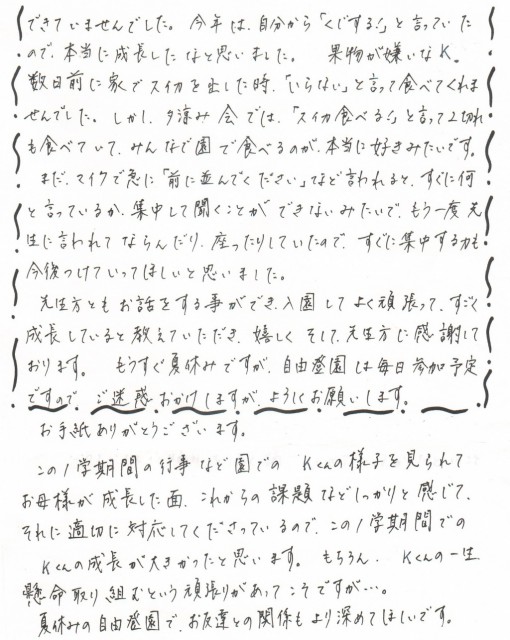 できていませんでした。今年は、自分から「くじする!」と言っていた
ので、本当に成長したなと思いました。 果物が嫌いなK。
数日前に家でスイカを出した時、「いらない」と言って食べてくれま
せんでした。しかし、夕涼み会では、「スイカ食べる!」と言って2切れ
も食べていて、みんなで園で食べるのが、本当に好きみたいです。
まだ、マイクで急に「前に並んでください」などと言われると、すぐに何
と言っているか、集中して聞くことができないみたいで、もう一度先
生に言われてならんだり、座ったりしていたので、すぐに集中する力も
今後つけていってほしいと思いました。
先生方ともお話をする事ができ、入園してよく頑張って、すごく
成長していると教えていただき、嬉しくそして、先生方に感謝して
おります。 もうすぐ夏休みですが、自由登園は毎日参加予定
ですので、ご迷惑おかけしますが、よろしくお願いします。
お手紙ありがとうございます。
この1学期間の行事など園でのKくんの様子を見られて
お母様が成長した面、これからの課題などしっかりと感じて、
それに適切に対応してくださっているので、この1学期間での
Kくんの成長が大きかったと思います。もちろん、Kくんの一生
懸命取り組むという頑張りがあってこそですが…。
夏休みの自由登園で、お友達との関係もより深めてほしいです。